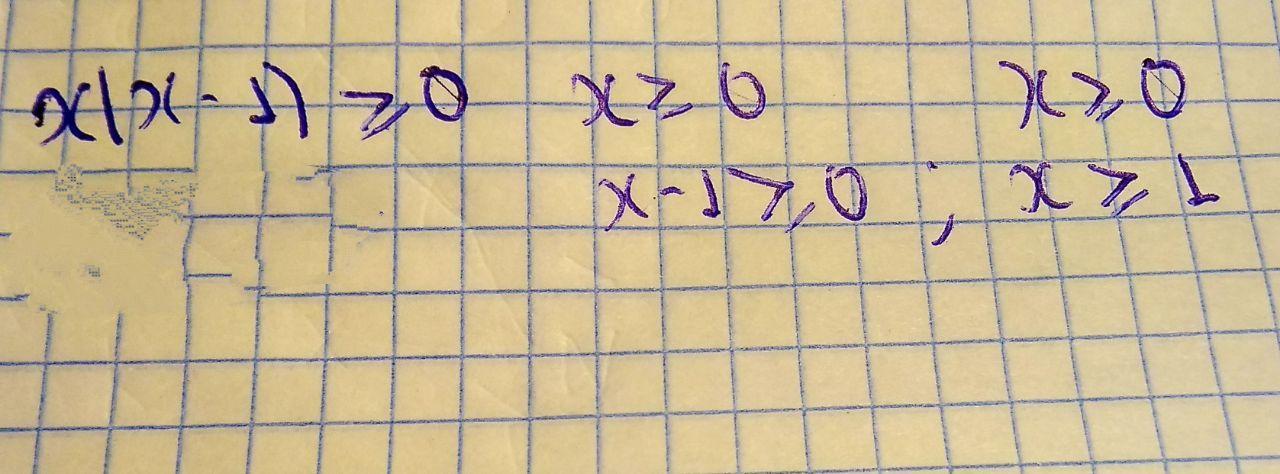 x(x-1) ≥0 x≥0 x≥0
x-1≥0 ; x≥1